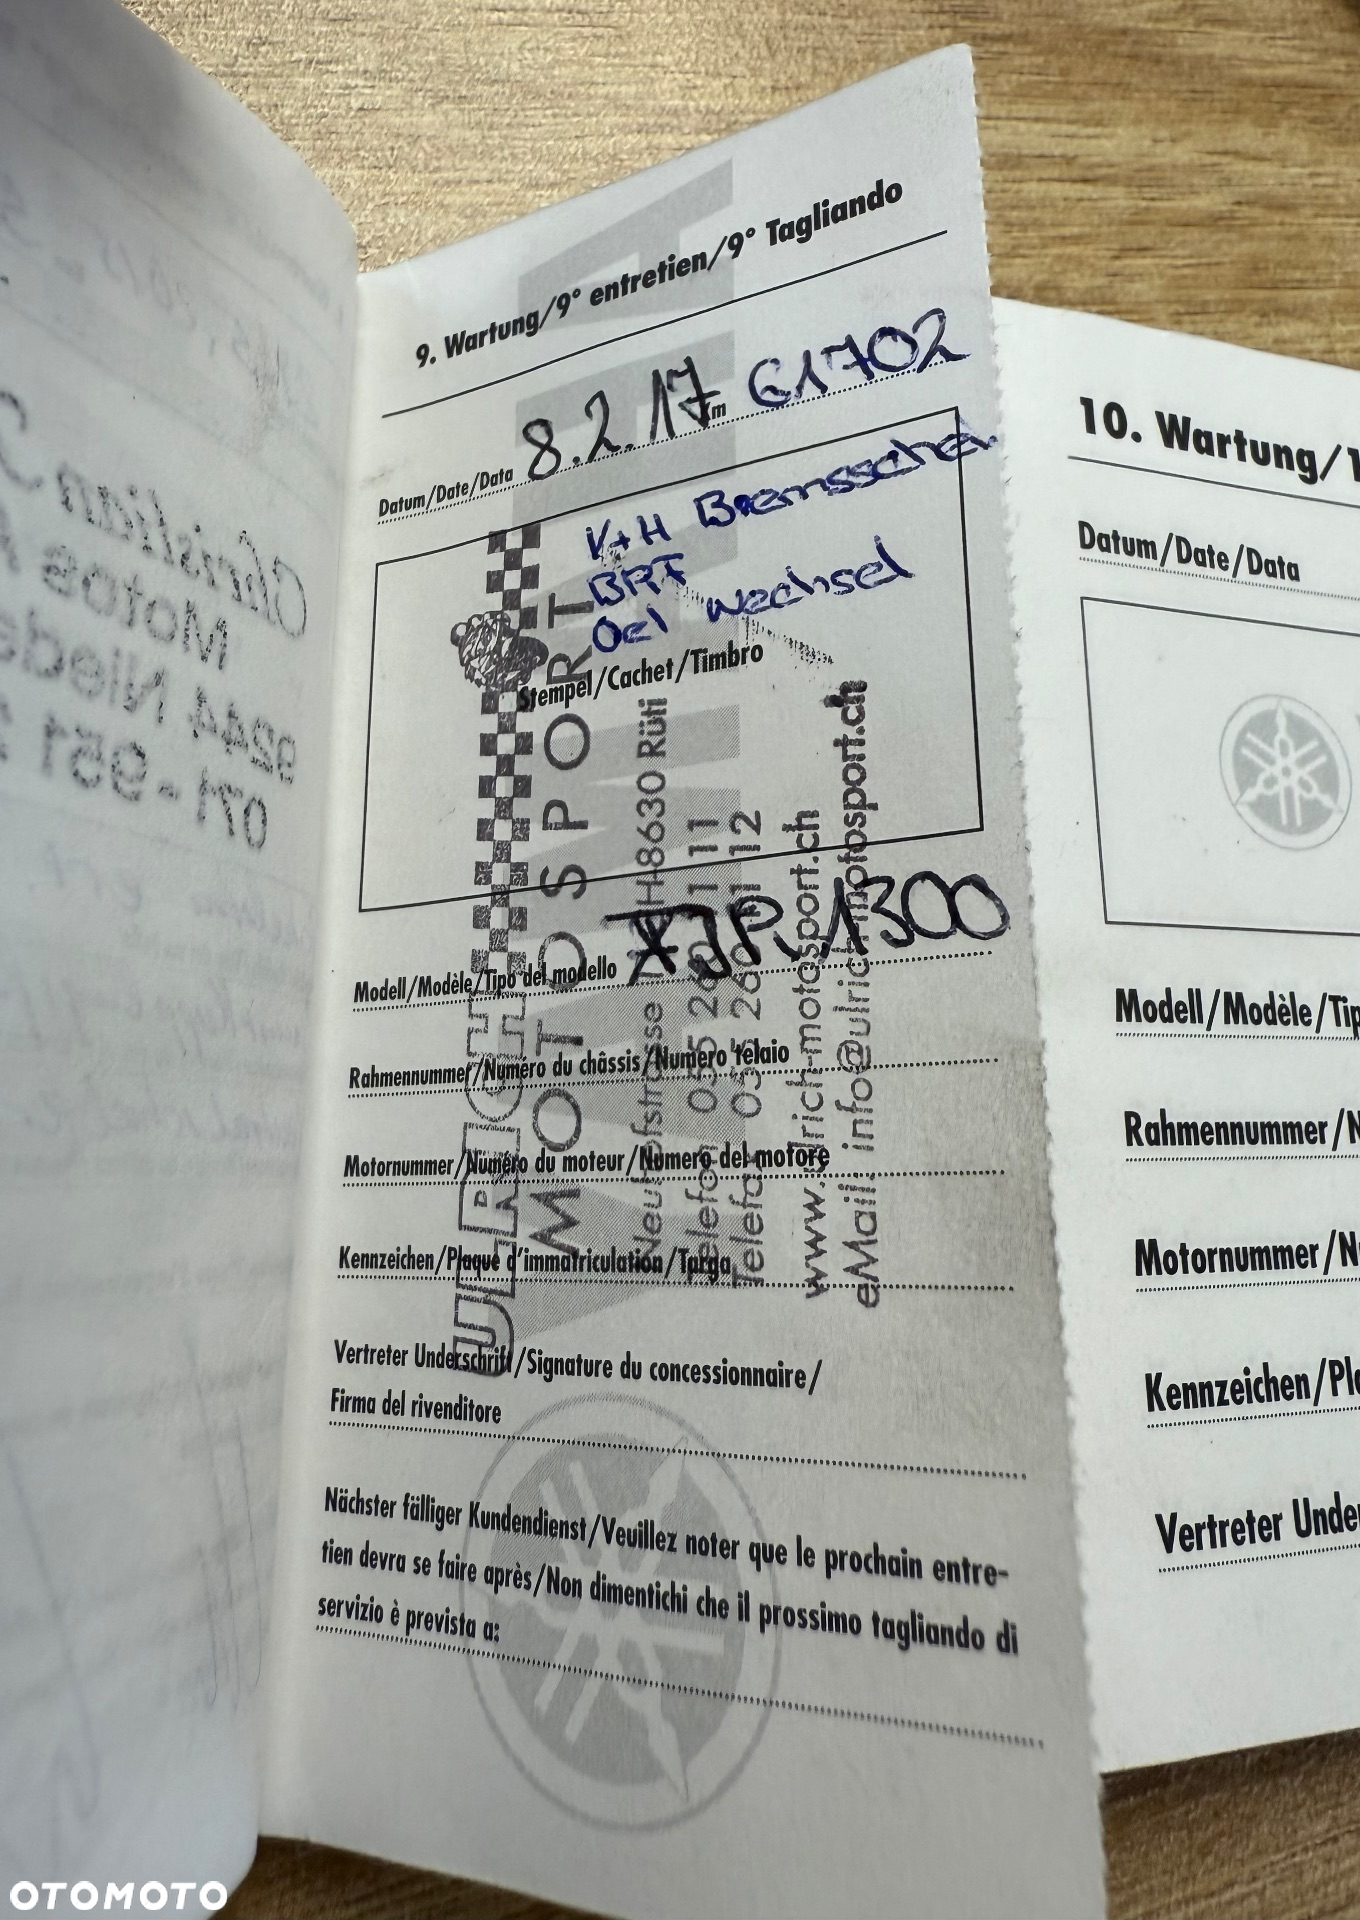 9. Wartung/9° entretien/9° Tagliando
Datum/Date/Data 8.2.17 Km 61702
V+H Bremsschei.
BRF
Oel wechsel
Stempel/Cachet/Timbro
ULRICH
MOTOSPORT
CH-8630 Rüti
www.ulrich-motosport.ch
eMail: info@ulrich-motosport.ch
Modell/Modèle/Tipo del modello FJR 1300
Rahmennummer/Numéro du châssis/Numero telaio
Motornummer/Numéro du moteur/Numero del motore
Kennzeichen/Plaque d'immatriculation/Targa
Vertreter Underschrift/Signature du concessionnaire/
Firma del rivenditore
Nächster fälliger Kundendienst/Veuillez noter que le prochain entre-
tien devra se faire après/Non dimentichi che il prossimo tagliando di
servizio è prevista a:
10. Wartung/1
Datum/Date/Data
Modell/Modèle/Tip
Rahmennummer/N
Motornummer/Nu
Kennzeichen/Pla
Vertreter Unde
Christian
Motos
9244 Niede
071-951
OTOMOTO